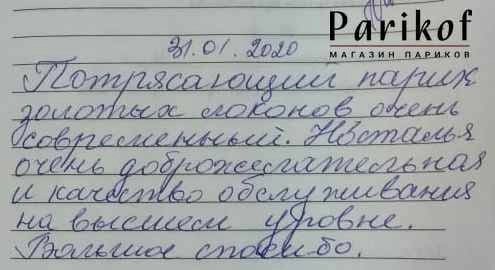 Parikof
МАГАЗИН ПАРИКОВ
31.01.2020
Потрясающий парик
золотых локонов очень
современный. Наталья
очень доброжелательная
и качество обслуживания
на высшем уровне.
Большое спасибо.